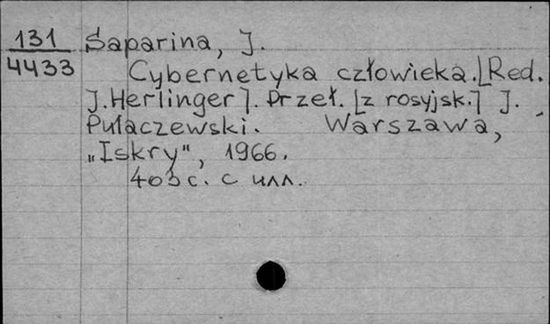 131
4433
Saparina, J.
Cybernetyka człowieka. [Red.
J. Herlinger]. Przeł. [z rosyjsk.] J.
Pułaczewski. Warszawa,
„Iskry", 1966.
403 с. с илл.